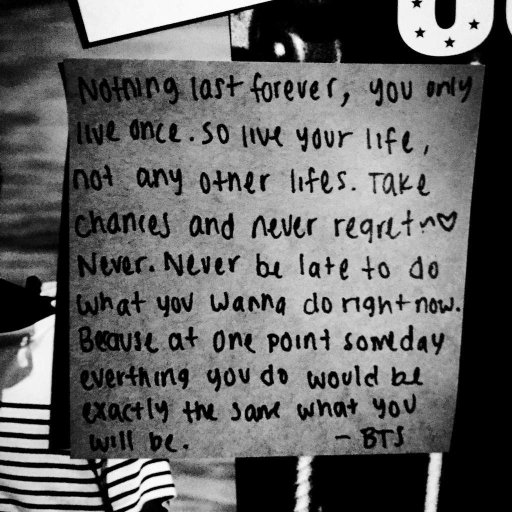 Nothing last forever, you only
live once. So live your life,
not any other lifes. Take
chances and never regret ♡
Never. Never be late to do
what you wanna do right now.
Because at one point someday
everthing you do would be
exactly the same what you
will be. - BTS